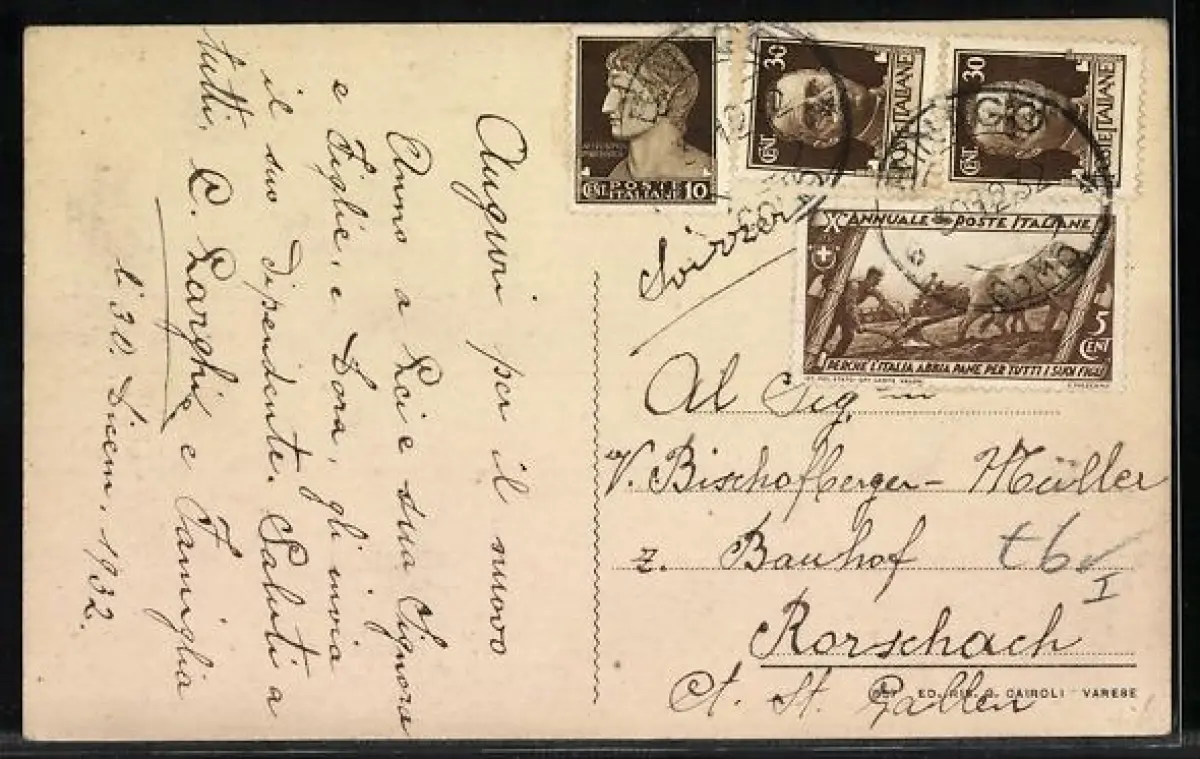 Auguri per il nuovo
Anno a Lei e sua Signora
e Figlie, e Dora, gli invia
il suo dipendente. Saluti a
tutti, C. Larghi e Famiglia
li 30. Dicem. 1932.
CENT. POSTE ITALIANE 10
CENT 30 POSTE ITALIANE
CENT 30 POSTE ITALIANE
30.12.32
X° ANNUALE POSTE ITALIANE
5 CENT
PERCHE L'ITALIA ABBIA PANE PER TUTTI I SUOI FIGLI
Svizzera
Al Sig.
V. Bischofberger-Müller
z. Bauhof t6
I
Rorschach
Ct. St. Gallen
ED. RIS. G. CAIROLI - VARESE